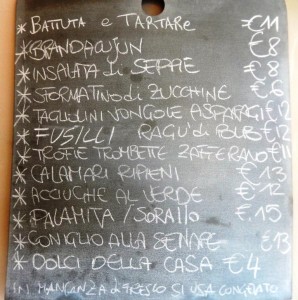 * BATTUTA e TARTARE €11
* BRANDACUJUN €8
* INSALATA di SEPPIE €8
* SFORMATINO di ZUCCHINE €6
* TAGLIOLINI VONGOLE ASPARAGI €12
* FUSILLI RAGU' di €12
* TROFIE TROMBETTE ZAFFERANO €11
* CALAMARI RIPIENI €13
* ACCIUGHE AL VERDE €12
* PALAMITA / €.15
* CONIGLIO ALLA SENAPE €13
* DOLCI DELLA CASA €4
IN MANCANZA di FRESCO SI USA CONGELATO